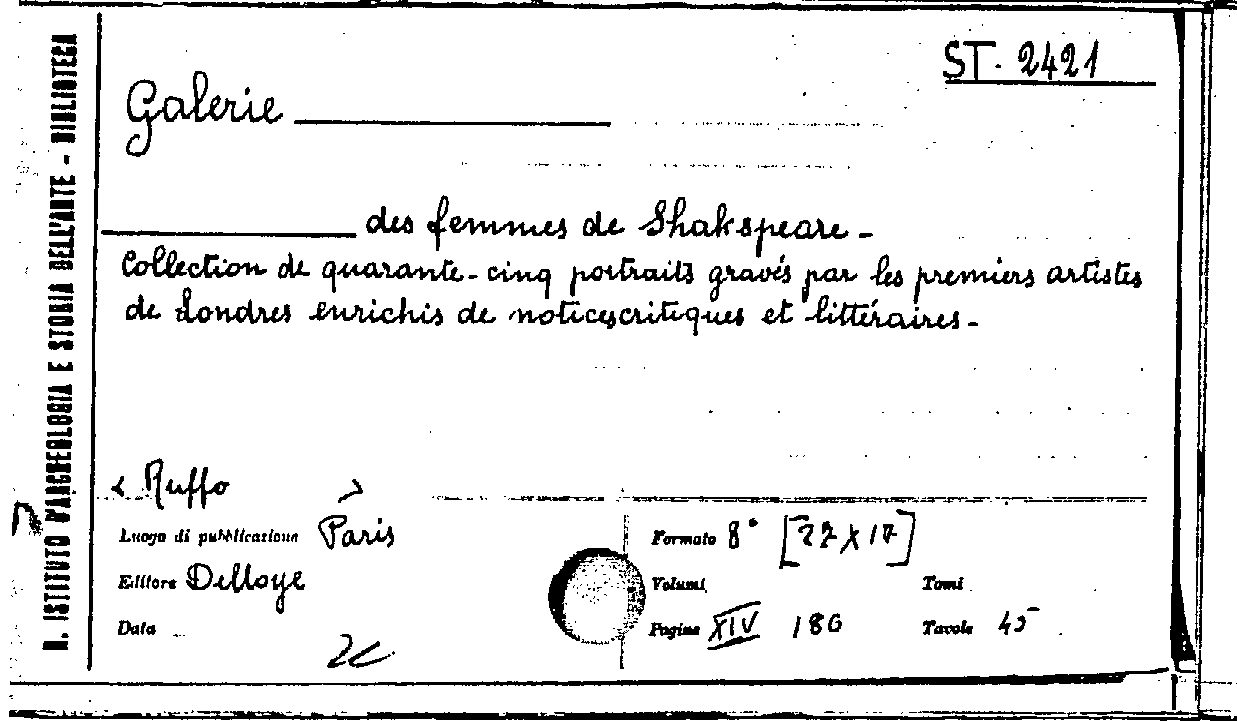 R. ISTITUTO D'ARCHEOLOGIA E STORIA DELL'ARTE - BIBLIOTECA
ST. 2421
Galerie
des femmes de Shakspeare -
Collection de quarante-cinq portraits gravés par les premiers artistes
de Londres enrichis de notices critiques et littéraires -
< Ruffo >
Luogo di pubblicazione Paris
Editore Delloye
Data
Formato 8° [27 X 17]
Volumi Tomi
Pagine XIV 180 Tavole 45